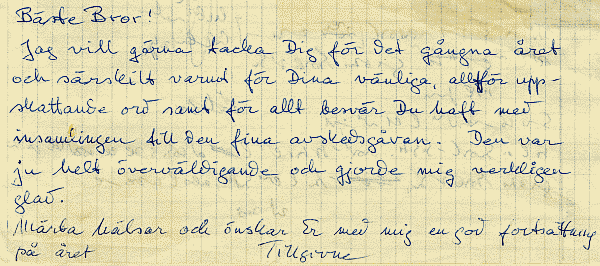 Bäste Bror!
Jag vill gärna tacka Dig för det gångna året
och särskilt varmt för Dina vänliga, alltför upp-
skattande ord samt för allt besvär Du haft med
insamlingen till den fina avskedsgåvan. Den var
ju helt överväldigande och gjorde mig verkligen
glad.
Märta hälsar och önskar Er med mig en god fortsättning
på året Tillgivne